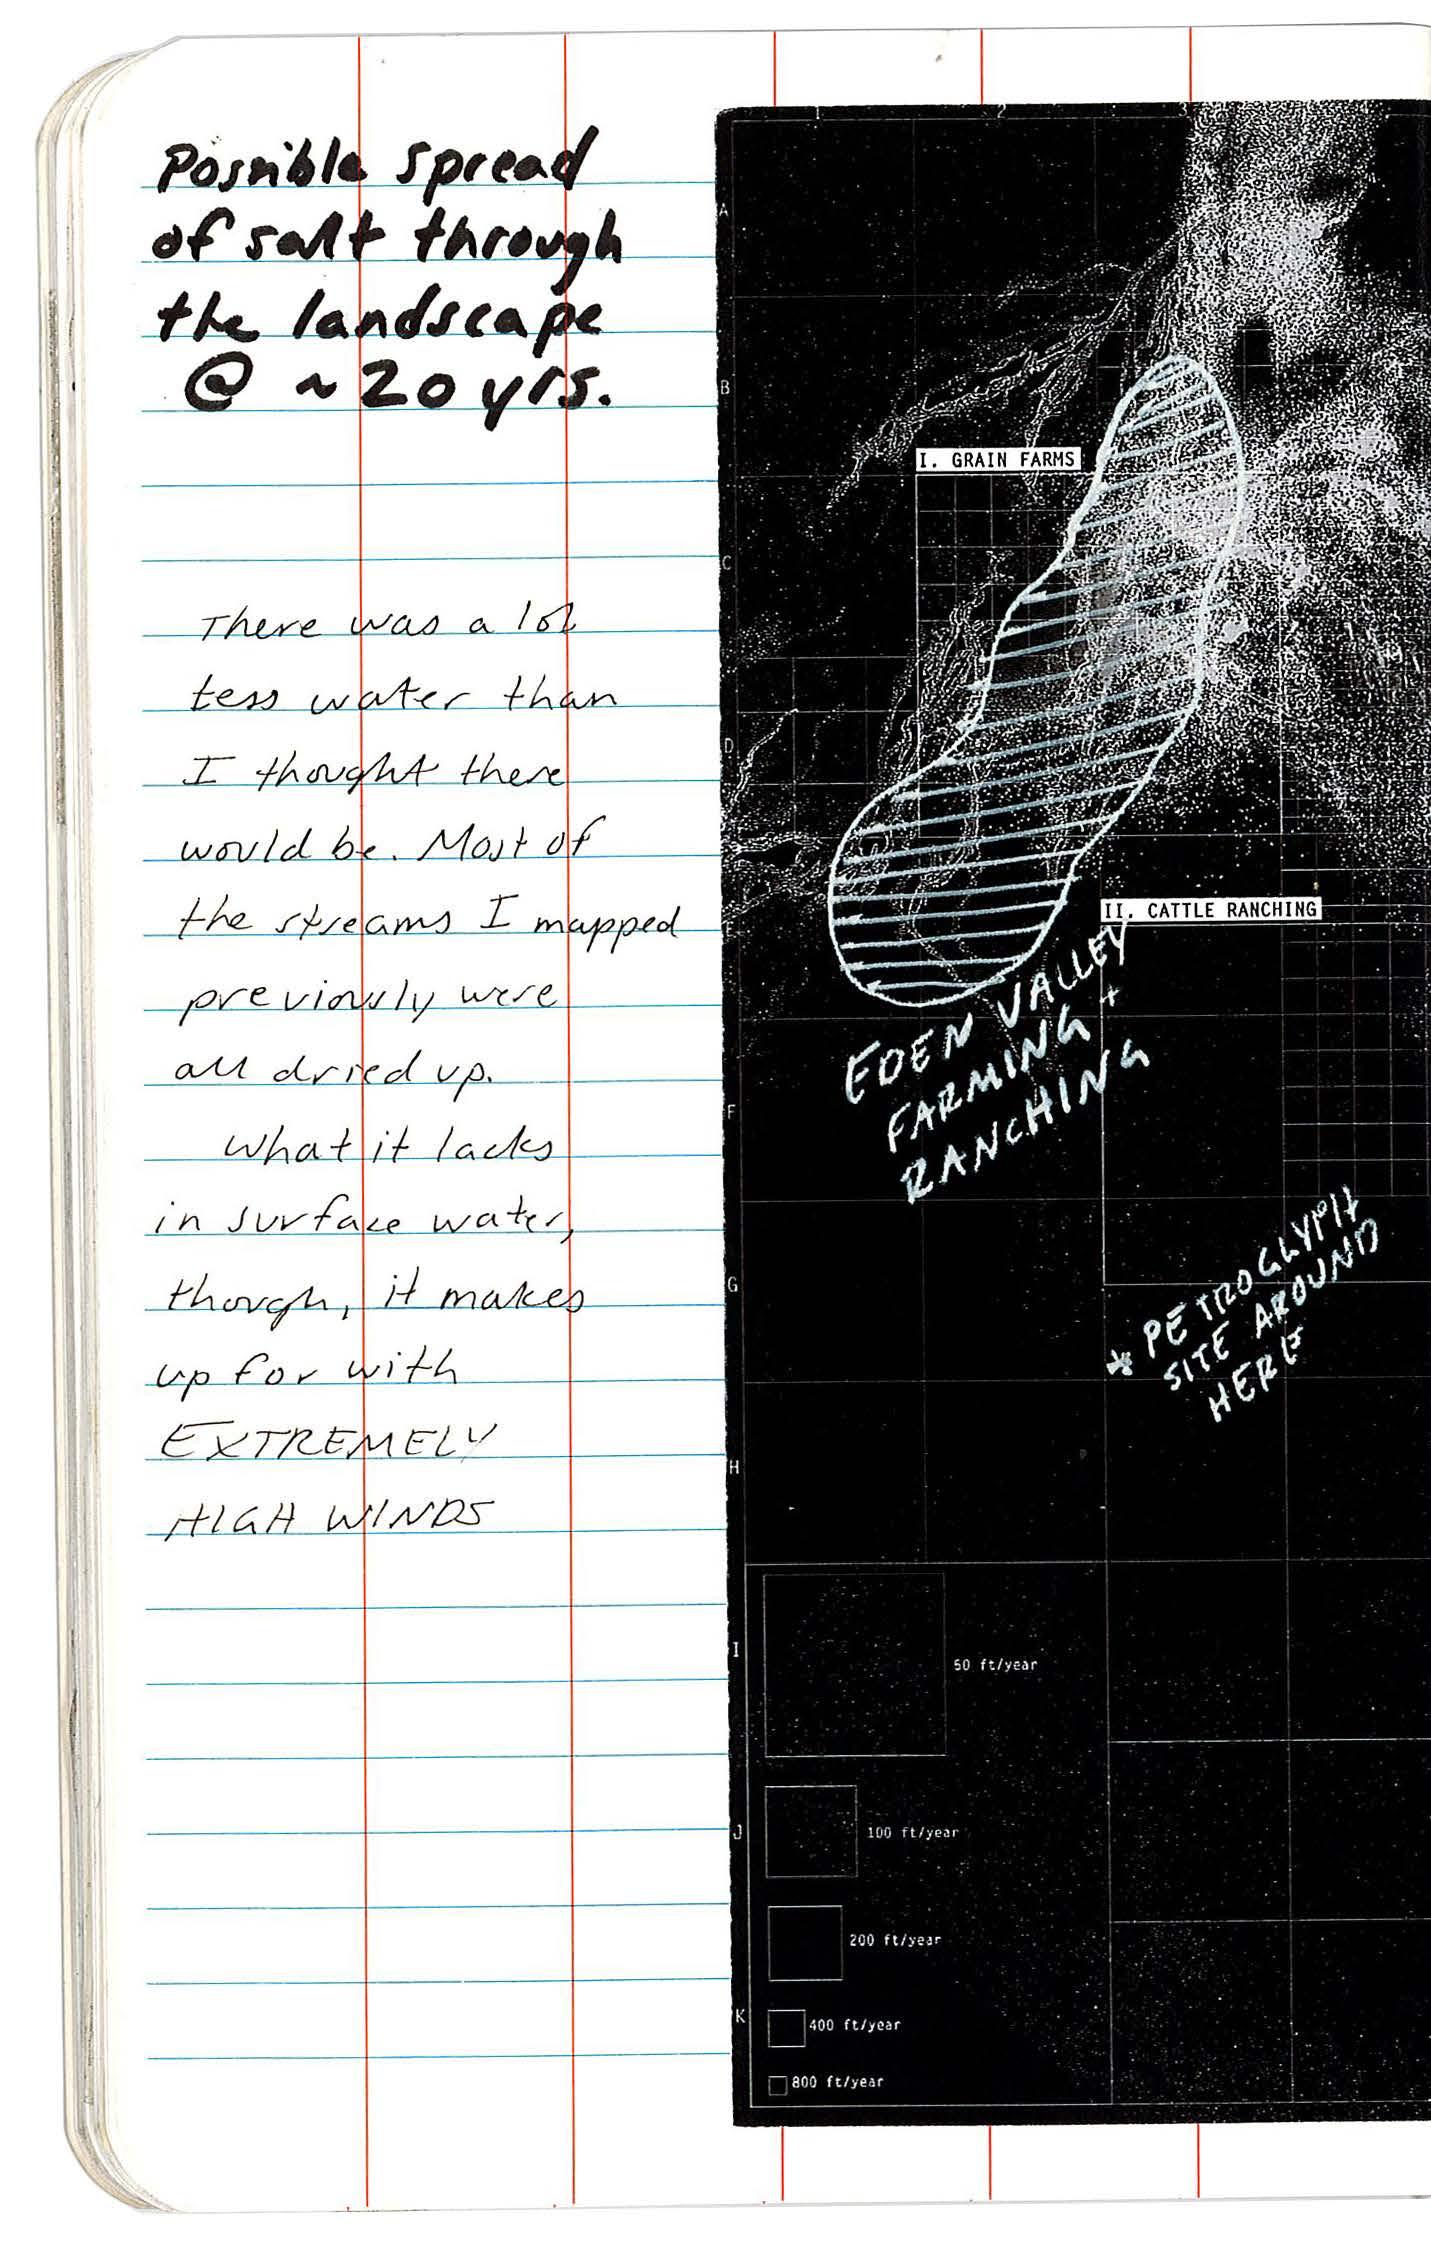 Possible spread
of salt through
the landscape
@ ~20 yrs.
There was a lot
less water than
I thought there
would be. Most of
the streams I mapped
previously were
all dried up.
What it lacks
in surface water,
though, it makes
up for with
EXTREMELY
HIGH WINDS
1
2
3
A
B
C
D
E
F
G
H
I
J
K
I. GRAIN FARMS
II. CATTLE RANCHING
EDEN VALLEY
FARMING +
RANCHING
* PETROGLYPH
SITE AROUND
HERE
50 ft/year
100 ft/year
200 ft/year
400 ft/year
800 ft/year